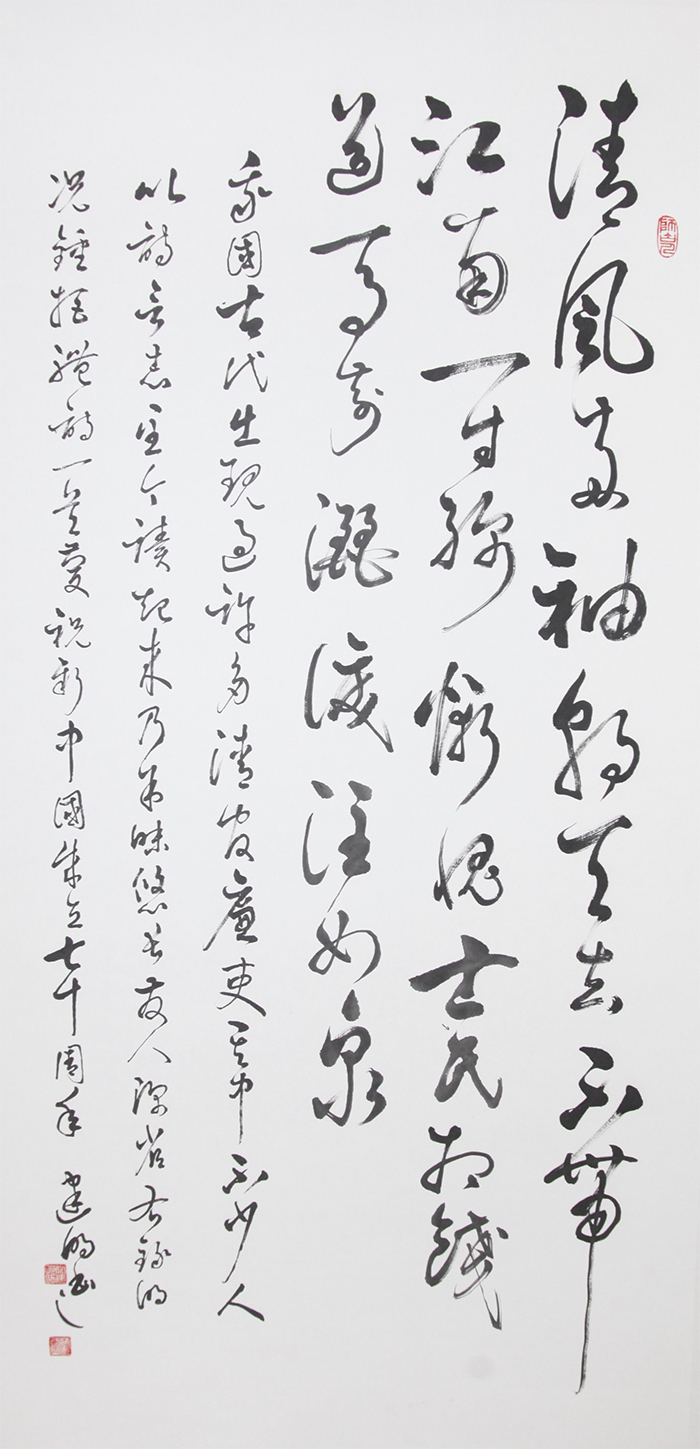 清風兩袖朝天去不帶
江南一寸綿慚愧士民相餞
送馬前灑淚注如泉
我國古代出現過許多清官廉吏其中不少人
以詩言志至今讀起來乃味悠長發人深省右錄明
況鍾拒禮詩一首慶祝新中國成立七十周年 建書